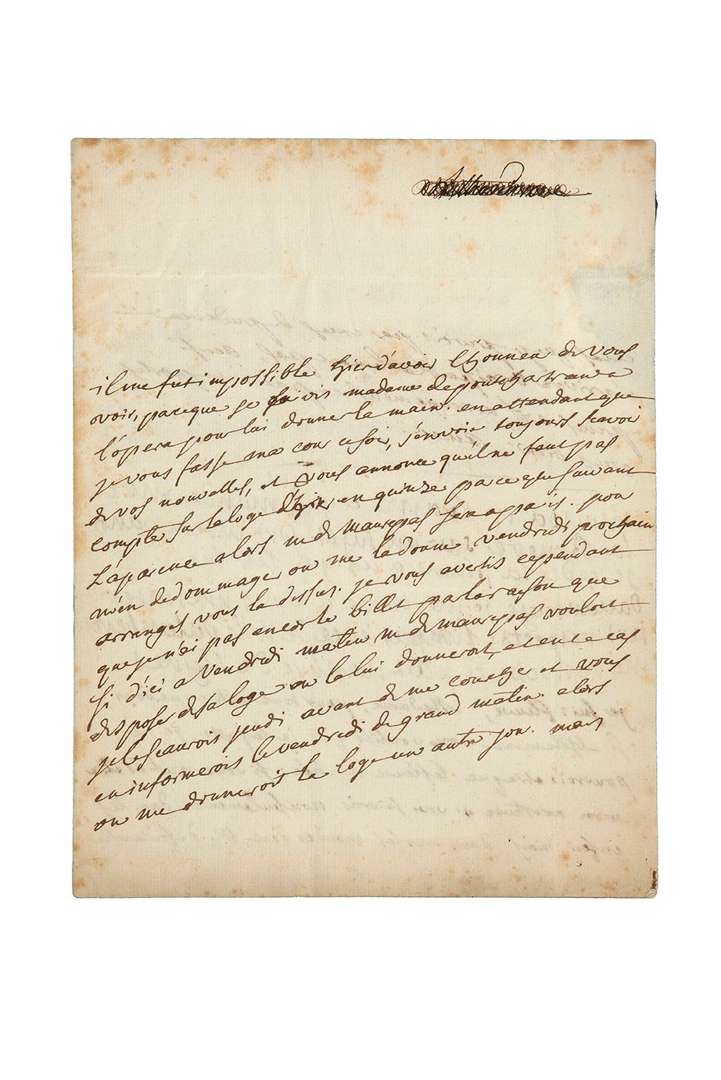 il me fut impossible hier d'avoir l'honneu de vous
voir, parceque je suivis madame de pontchartrain a
l'opera pour lui donner la main. en attendant que
je vous fasse ma cour ce soir, j'envoie toujours scavoi
de vos nouvelles, et vous annonce qu'il ne faut pas
compter sur la loge d'hier en quinze parce que suivant
l'aparence alors m. de maurepas sera a paris. pour
m'en dedommager on me la donne vendredi prochain
arrangés vous la dessus. je vous avertis cependant
que je n'ai pas encor le billet par la raison que
si d'ici a vendredi matin m. de maurepas vouloit
disposer de sa loge on la lui donneroit, et en ce cas
je le scaurois jeudi avant de me coucher et vous
en informerois le vendredi de grand matin. alors
on me donneroit la loge un autre jour. mais